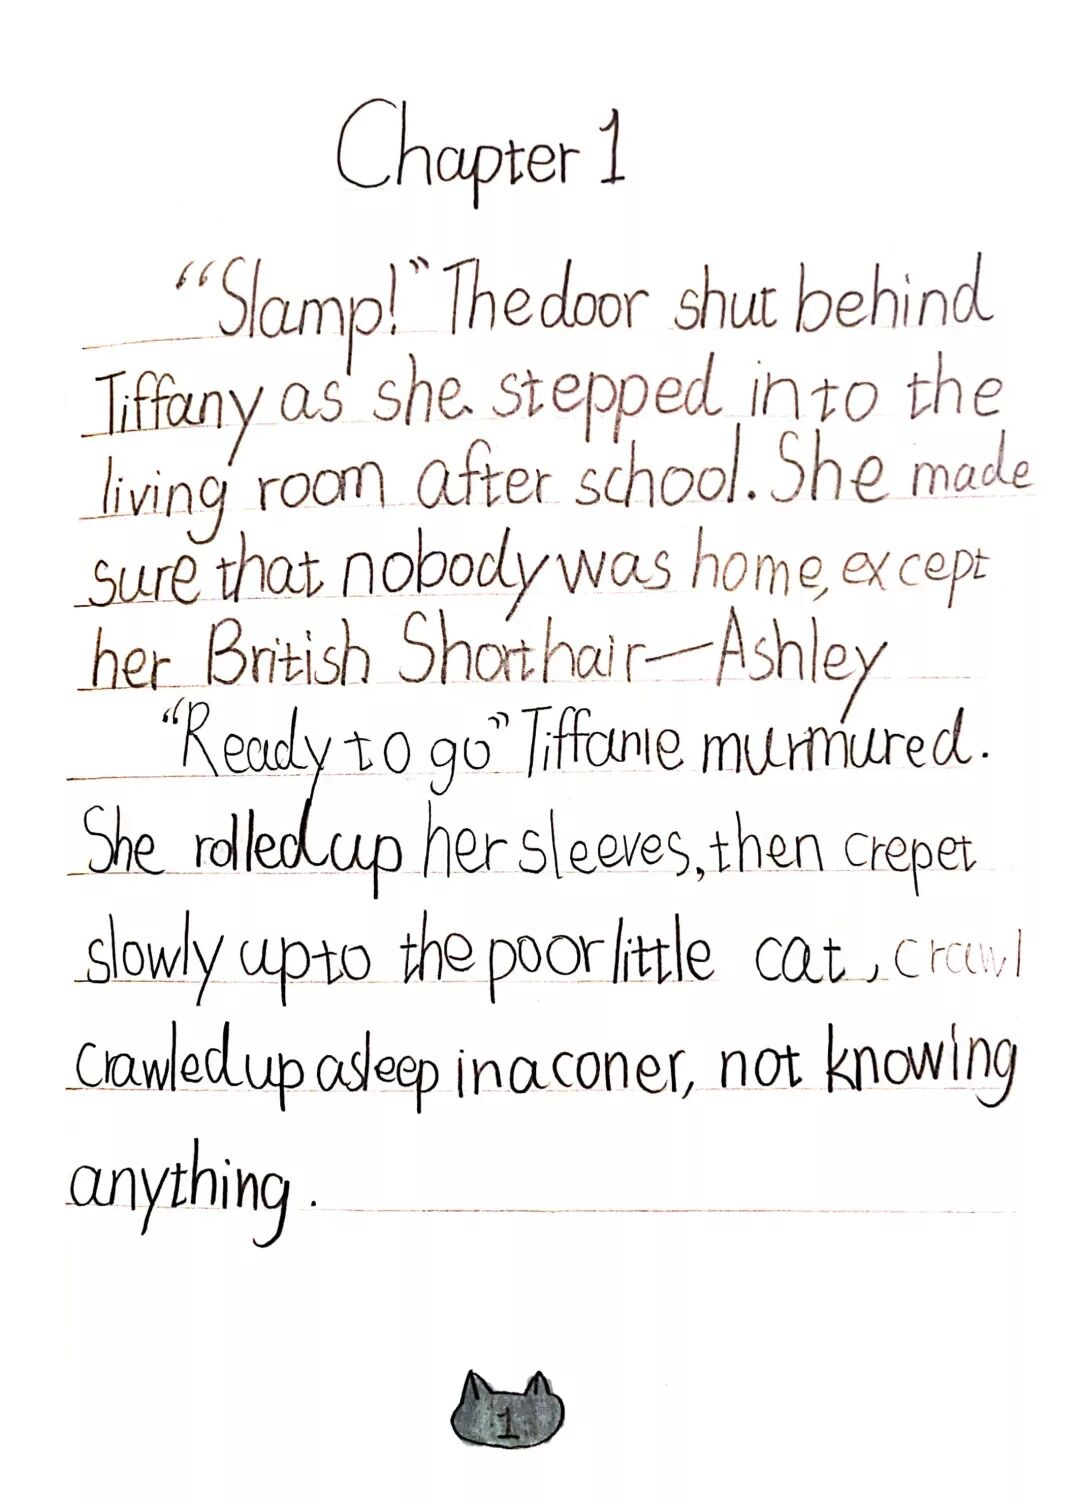 Chapter 1
“Slamp!” The door shut behind
Tiffany as she stepped into the
living room after school. She made
sure that nobody was home, except
her British Shorthair—Ashley
“Ready to go” Tiffanie murmured.
She rolled up her sleeves, then crepet
slowly up to the poor little cat, crawl
crawled up asleep in a coner, not knowing
anything.
1